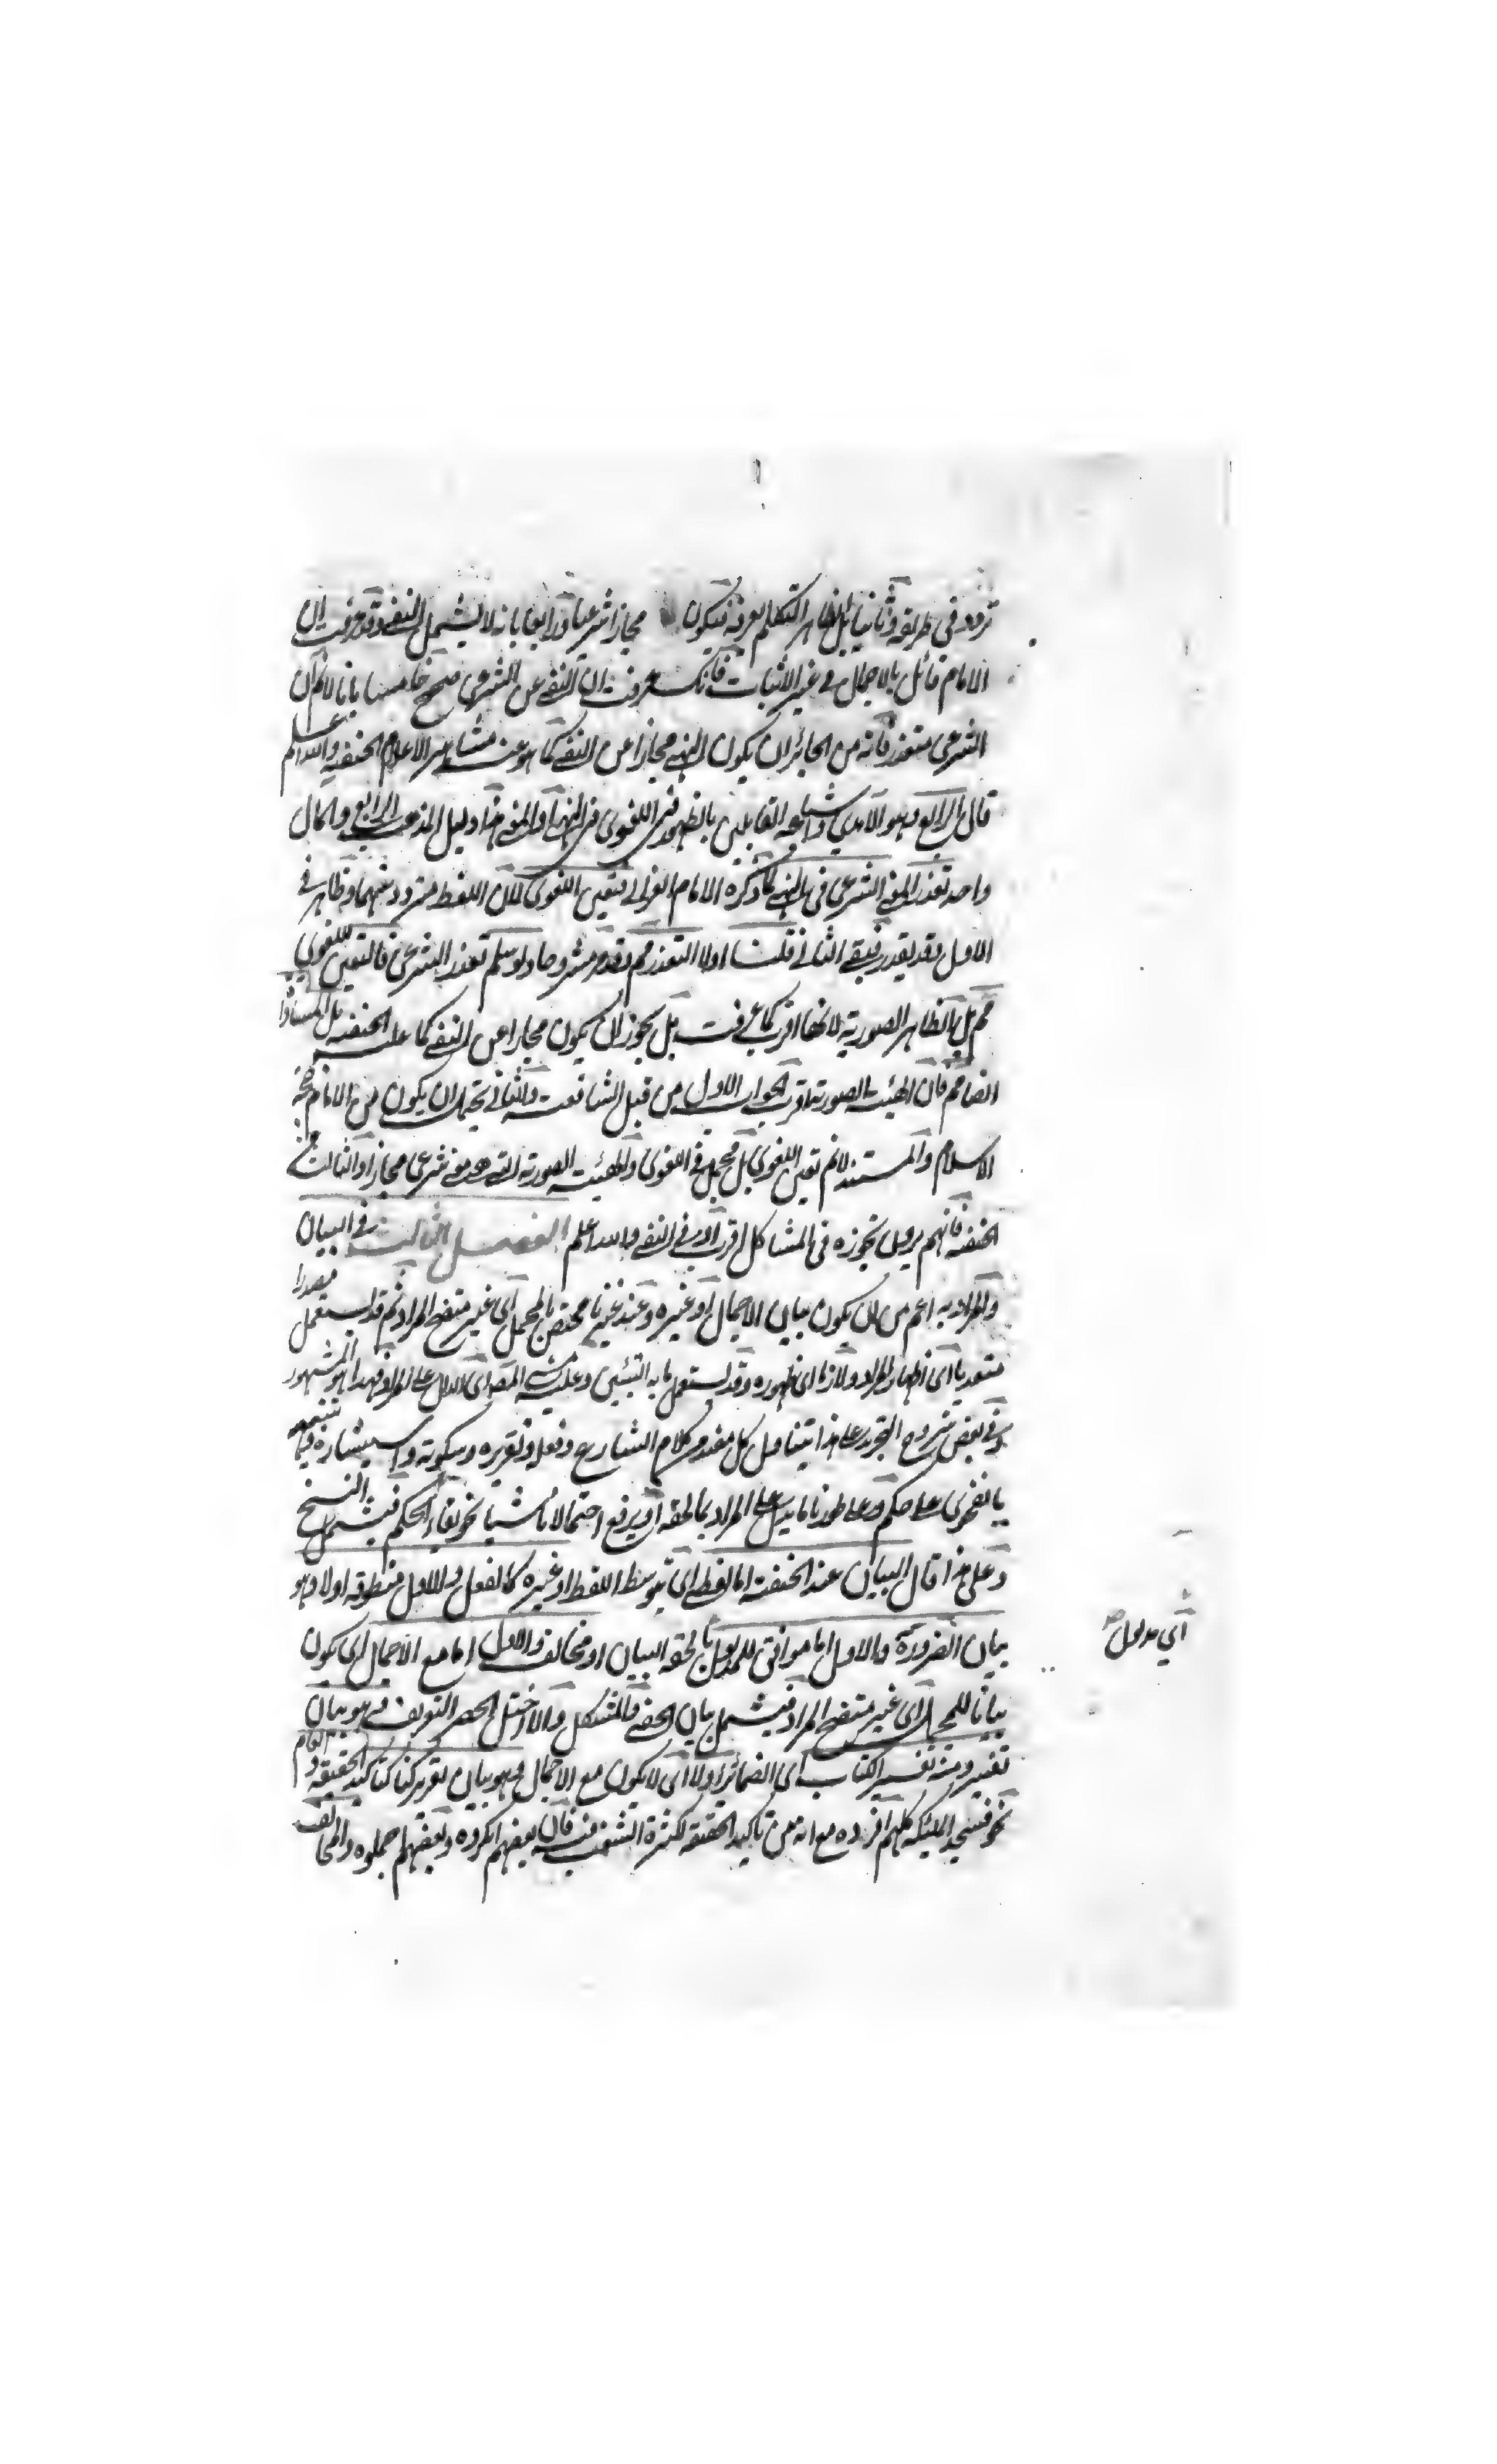 تردد في طريقه وثانيا بل الظاهر التكلم بعرفه فيكون مجازا شرعيا ورابعا بانه لا يشمل النفي وقد عرفت ان
الامام قائل بالاجمال في غير الاثبات فانك عرفت ان النفي عن الشرعي صحيح خامسا بانا لانم ان
الشرعي متعذر فانه من الجائز ان يكون النهي مجازا عن النفي كما هو عند مشاهير الاعلام الحنفية والله اعلم
قال الرابع وهو الآمدي القايلين بالظهور في اللغوي في النهي هذا دليل المذهب الرابع والمآل
واحد تعذر المعنى الشرعي في النهي لما ذكره الامام الغزالي فتعين اللغوي لان اللفظ متردد بينهما وظاهر في
الاول وقد تعذر فبقي الثاني قلنا اولا التعذر مم وقد مر مشروحا ولو سلم تعذر الشرعي فالتعين للغوي
مم بل الظاهر الصورية لانها اقرب كما عرفت بل يجوز ان يكون مجازا عن النفي كما عليه الحنفية بل
ايضا مم فان الهيئة الصورية اقرب الجواب الاول من قبل الشافعية والثاني يحتمل ان يكون من الامام حجة
الاسلام والمستند لانم تعين اللغوي بل مجمل في اللغوي والهيئة الصورية التي هي معنى شرعي مجازا والثالث من
الحنفية فانهم يرون تجوزه في المشاكل اقرب او في النفي والله اعلم الفصل الثالث في البيان
والمراد به اعم من ان يكون بيان الاجمال او غيره وعند غيرنا مختص بالمجمل اي غير متضح المراد ثم قد يستعمل مصدرا
متعديا اي اظهار المراد ولازما اي ظهوره وقد يستعمل ما به التبيين وعليه مشى المص اي الدال على المراد فهذا هو المشهور
وفي بعض شروح التحرير على هذا يتناول كل مفيد من كلام الشارع وفعله وتقريره وسكوته واستبشاره
بالفحوى على حكم وعلى طورنا ما يدل على المراد بما لحقه او يرفع احتمالا ناشيا نحو بقاء الحكم فيشمل النسخ
وعلى هذا قال البيان عند الحنفية اما لفظي اي بتوسط اللفظ او غيره كالفعل والاول منطوقه اولا وهو
بيان الضرورة والاول اما موافق للمدلول ما لحقه البيان او مخالف والاول اما مع الاجمال اي يكون
بيانا للمجمل اي غير متضح المراد فيشمل بيان الخفي والمشكل والا اختل الحصر التعريف وهو بيان
تفسير ومنه تفسير الكتاب اي الضمائر اولا اي لا يكون مع الاجمال وهو بيان تقرير كتأكيد الحقيقة والعام
نحو فسجد الملئكة كلهم افرده مع انه من تاكيد الحقيقة لكثرة الشغب فيه فان بعضهم انكروه وبعضهم اجملوه والمخالف
اي مدلول